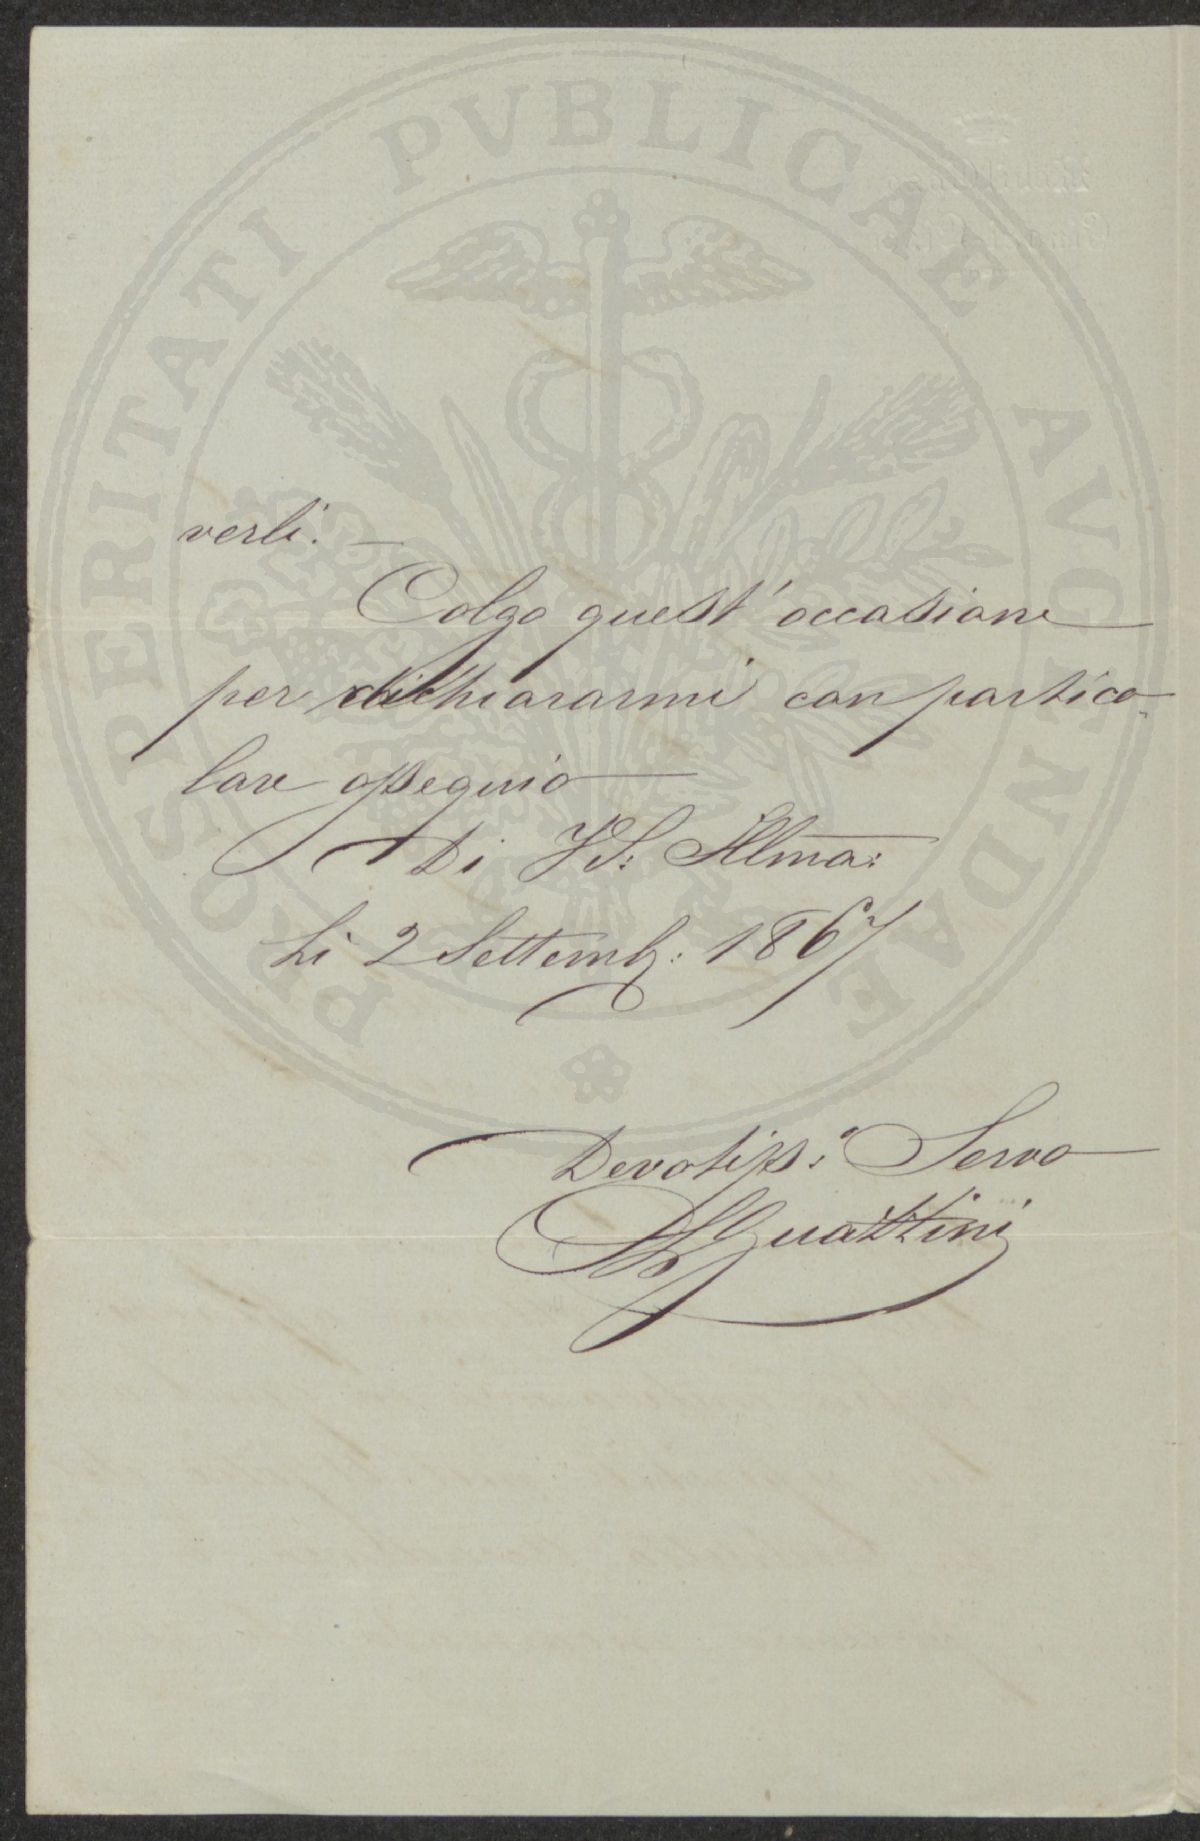 PROSPERITATI PVBLICAE AVGENDAE
verli. —
Colgo quest' occasione
per dichiararmi con partico-
lare ossequio
Di V. S. Illma:
Li 2 Settemb: 1867
Devotiss:o Servo
Guattini